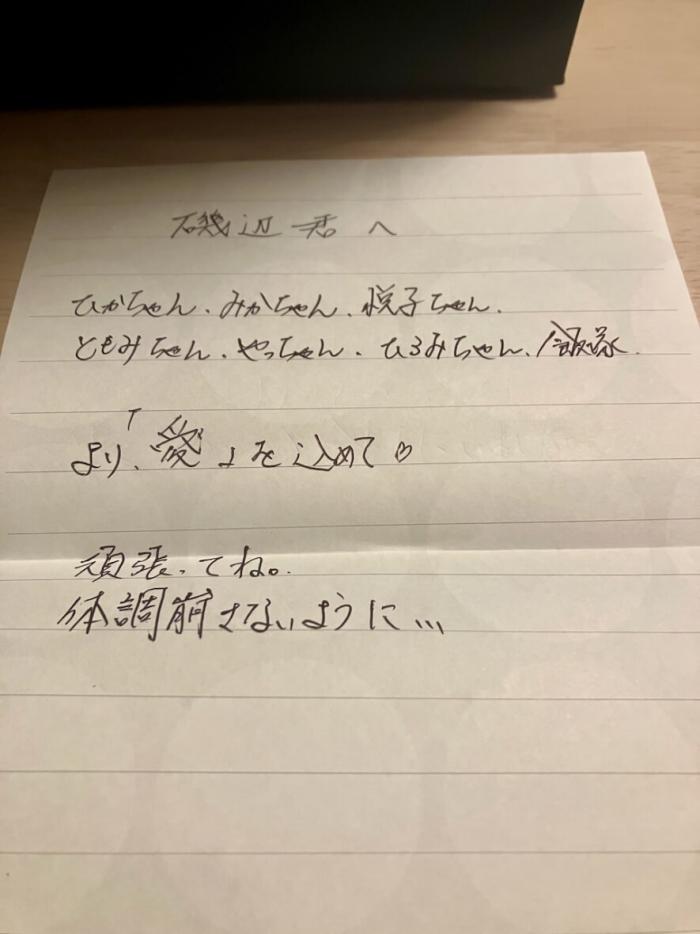 磯辺君へ
ひかちゃん、みかちゃん、悦子ちゃん、
ともみちゃん、やっちゃん、ひろみちゃん、飯塚
より、「愛」を込めて♡
頑張ってね。
体調崩さないように…